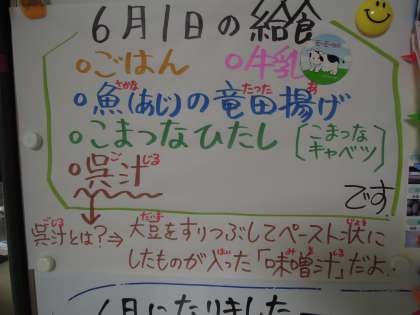 6月1日の給食
○ごはん ○牛乳
○魚(あじ)の竜田揚げ
○こまつなひたし [こまつな キャベツ]
○呉汁
です。
呉汁とは?⇒大豆をすりつぶしてペースト状に
したものが入った「味噌汁」だよ。
6月になりました